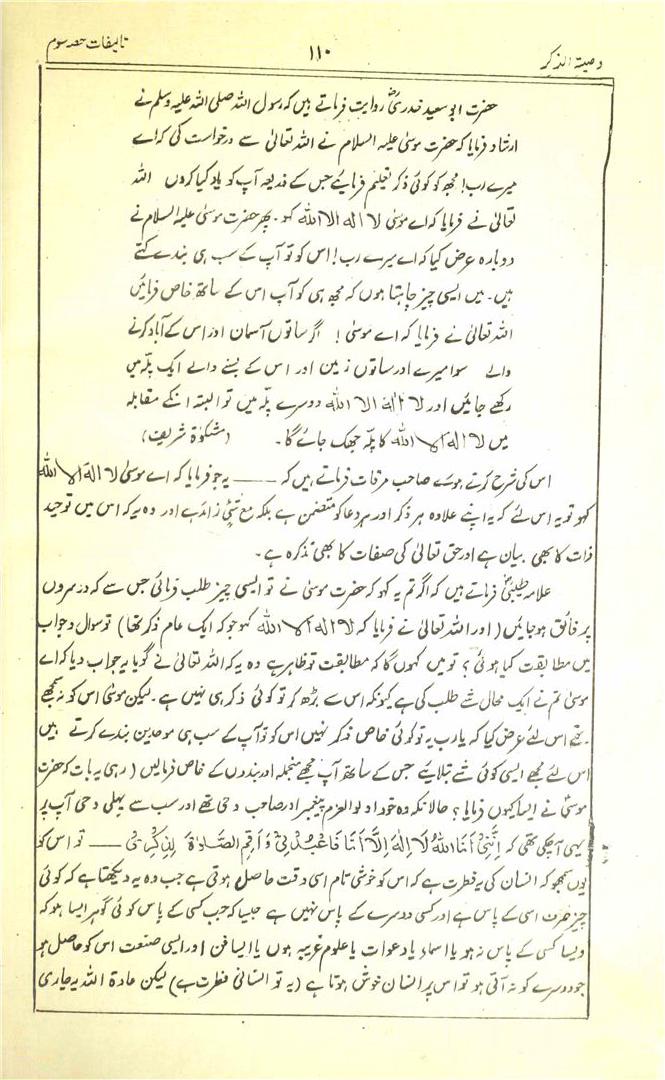 وصیۃ الذکر ۱۱۰ تالیفات حصہ سوم
حضرت ابو سعید خدریؓ روایت فرماتے ہیں کہ رسول اللہ صلی اللہ علیہ وسلم نے
ارشاد فرمایا کہ حضرت موسیٰ علیہ السلام نے اللہ تعالیٰ سے درخواست کی کہ اے
میرے رب! مجھ کو کوئی ذکر تعلیم فرمایئے جس کے ذریعہ آپ کو یاد کیا کروں اللہ
تعالیٰ نے فرمایا کہ اے موسیٰ لا الہ الا اللہ کہو۔ پھر حضرت موسیٰ علیہ السلام نے
دوبارہ عرض کیا کہ اے میرے رب! اس کو تو آپ کے سب ہی بندے کہتے
ہیں۔ میں ایسی چیز چاہتا ہوں کہ مجھ ہی کو آپ اس کے ساتھ خاص فرمائیں
اللہ تعالیٰ نے فرمایا کہ اے موسیٰ! اگر ساتوں آسمان اور اس کے آباد کرنے
والے سوا میرے اور ساتوں زمین اور اس کے بسنے والے ایک پلّہ میں
رکھے جائیں اور لا الٰہ الا اللہ دوسرے پلّہ میں تو البتہ انکے مقابلہ
میں لا الہ الا اللہ کا پلّہ جھک جائے گا۔ (مشکوٰۃ شریف)
اس کی شرح کرتے ہوئے صاحب مرقات فرماتے ہیں کہ —— یہ جو فرمایا کہ اے موسیٰ لا الہ الا اللہ
کہو تو یہ اس لئے کہ یہ اپنے علاوہ ہر ذکر اور ہر دعا کو متضمن ہے بلکہ مع شئی زائد ہے اور وہ یہ کہ اس میں توحید
ذات کا بھی بیان ہے اور حق تعالیٰ کی صفات کا بھی تذکرہ ہے۔
علامہ طیبیؒ فرماتے ہیں کہ اگر تم یہ کہو کہ حضرت موسیٰ نے تو ایسی چیز طلب فرمائی جس سے کہ دوسروں
پر فائق ہو جائیں (اور اللہ تعالیٰ نے فرمایا کہ لا الہ الا اللہ کہو جو کہ ایک عام ذکر تھا) تو سوال و جواب
میں مطابقت کیا ہوئی؟ تو میں کہوں گا کہ مطابقت تو ظاہر ہے وہ یہ کہ اللہ تعالیٰ نے گویا یہ جواب دیا کہ اے
موسیٰ تم نے ایک محال شے طلب کی ہے کیونکہ اس سے بڑھ کر تو کوئی ذکر ہی نہیں ہے۔ لیکن موسیٰ اس کو نہ سمجھے
تھے اس لئے عرض کیا کہ یارب یہ تو کوئی خاص ذکر نہیں اس کو تو آپ کے سب ہی موحدین بندے کرتے ہیں
اس لئے مجھے ایسی کوئی شے بتلایئے جس کے ساتھ آپ مجھے منجملہ اور بندوں کے خاص فرمالیں (رہی یہ بات کہ حضرت
موسیٰ نے ایسا کیوں فرمایا؟ حالانکہ وہ خود اولوالعزم پیغمبر اور صاحب وحی تھے اور سب سے پہلی وحی آپ پر
یہی آچکی تھی کہ اِنَّنِیْ اَنَا اللہُ لَا اِلٰہَ اِلَّا اَنَا فَاعْبُدْنِیْ وَ اَقِمِ الصَّلوٰۃَ لِذِکْرِیْ —— تو اس کو
یوں سمجھو کہ انسان کی یہ فطرت ہے کہ اس کو خوشی تام اسی وقت حاصل ہوتی ہے جب وہ یہ دیکھتا ہے کہ کوئی
چیز صرف اسی کے پاس ہے اور کسی دوسرے کے پاس نہیں ہے جیسا کہ جب کسی کے پاس کوئی گوہر ایسا ہو کہ
ویسا کسی کے پاس نہ ہو یا اسماء یا دعوات یا علوم غریبہ ہوں یا ایسا فن اور ایسی صنعت اس کو حاصل ہو
جو دوسرے کو نہ آتی ہو تو اس پر انسان خوش ہوتا ہے (یہ تو انسانی فطرت ہے) لیکن عادۃ اللہ یہ جاری